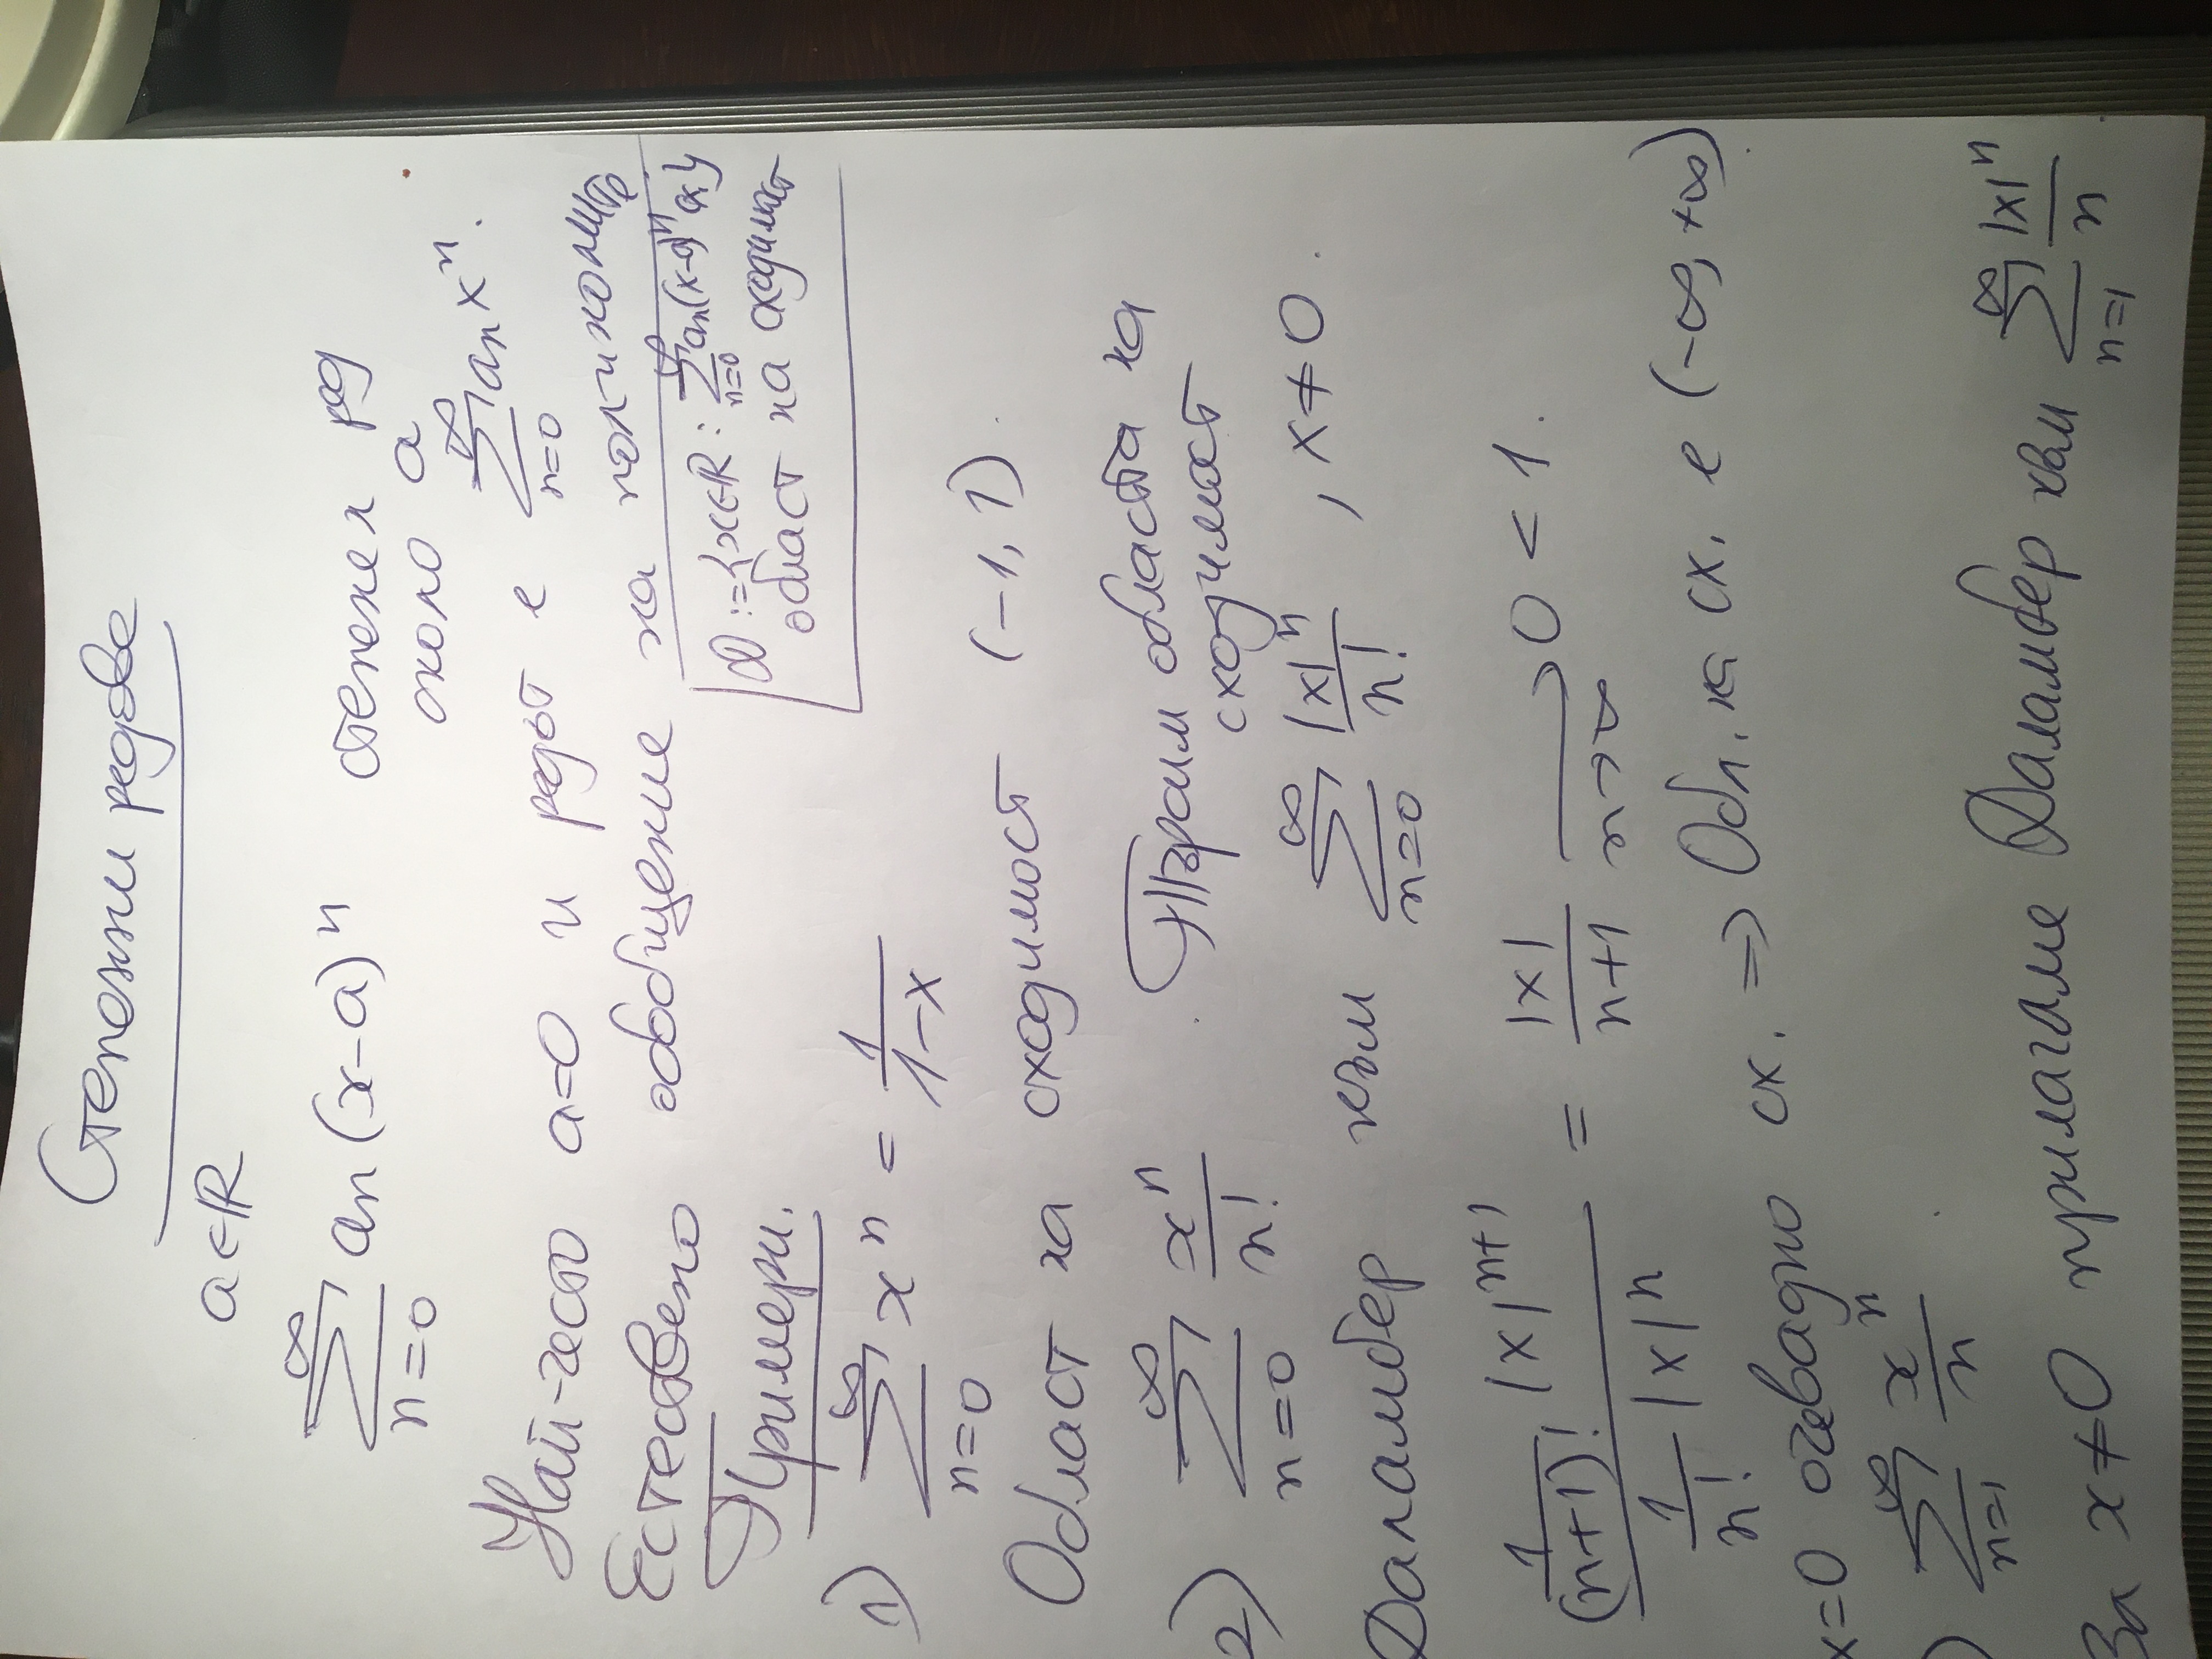 Степенни редове
a∈ℝ
∑_{n=0}^{∞} aₙ(x-a)ⁿ степенен ред
около a
Най-често a=0 и редът е ∑_{n=0}^{∞} aₙxⁿ.
Естествено обобщение на полиномите
D := {x∈ℝ : ∑_{n=0}^{∞} aₙ(x-a)ⁿ сх.}
област на сходимост
Примери.
1) ∑_{n=0}^{∞} xⁿ = 1/(1-x)
Област на сходимост (-1, 1).
2) ∑_{n=0}^{∞} xⁿ/n! . Търсим областта на
сходимост
Даламбер към ∑_{n=0}^{∞} |x|ⁿ/n! , x≠0.
(1/(n+1)! |x|^{n+1})/(1/n! |x|ⁿ) = |x|/(n+1) →_{n→∞} 0 < 1.
x=0 очевадно сх. ⇒ Обл. на сх. е (-∞, +∞).
) ∑_{n=1}^{∞} xⁿ/n .
За x≠0 прилагаме Даламбер към ∑_{n=1}^{∞} |x|ⁿ/n